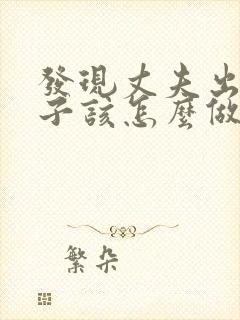 發現丈夫出
子該怎麼做
繁朵